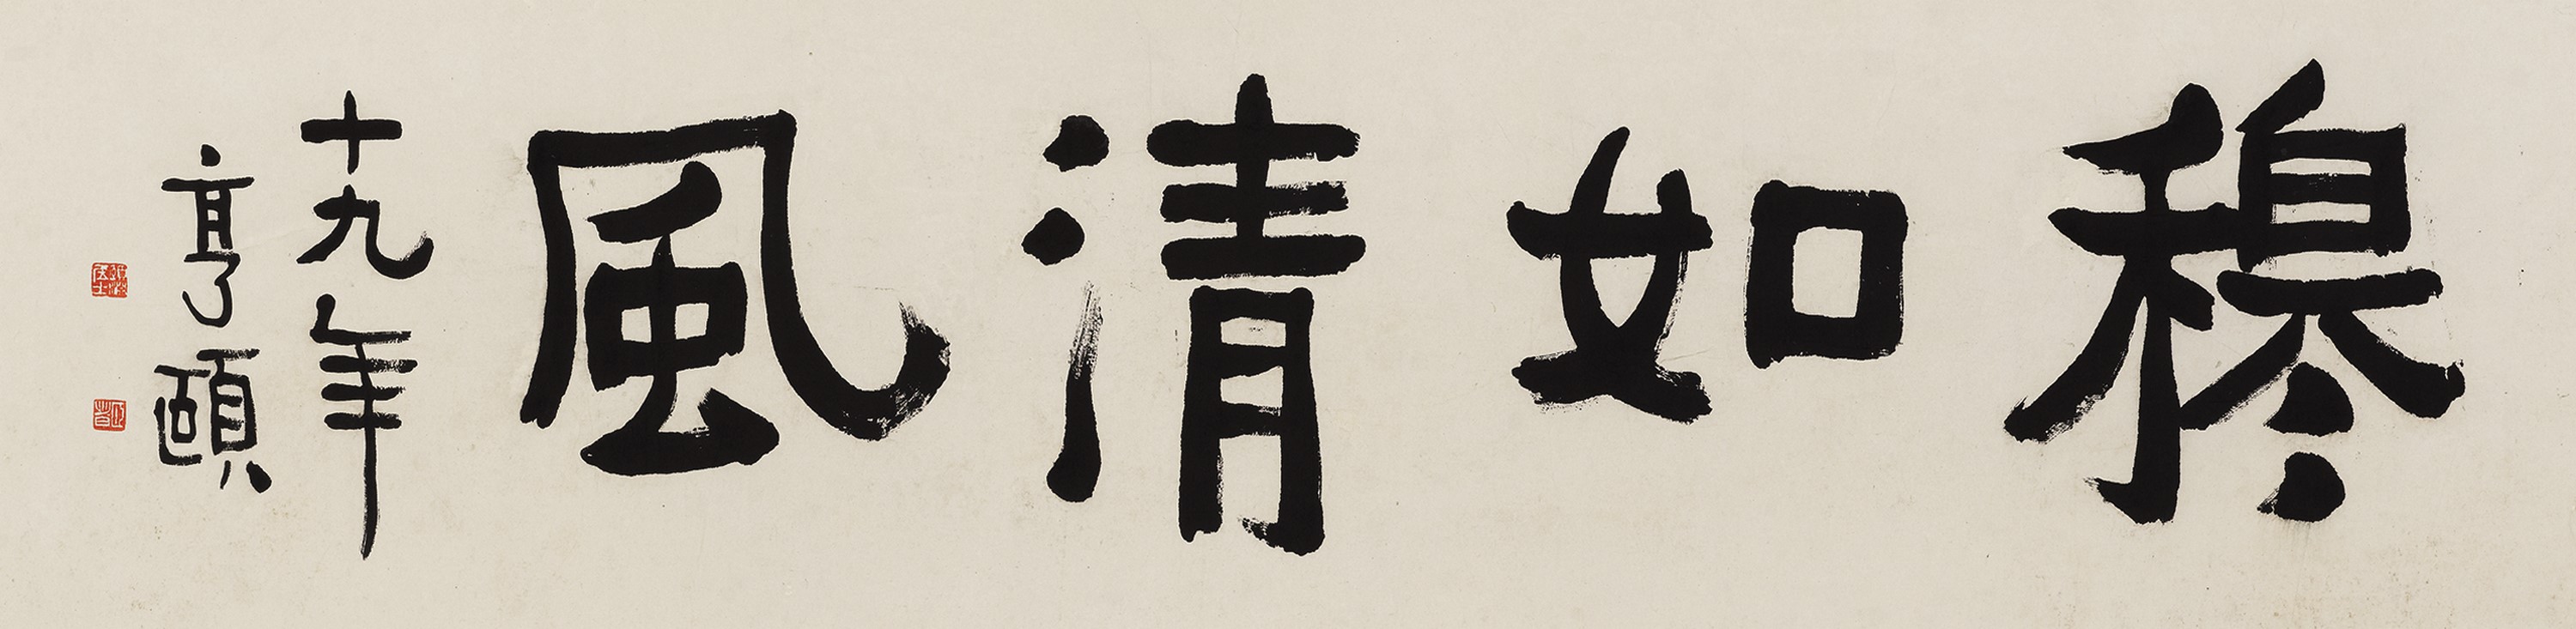 穆如清風
十九年
亨頤